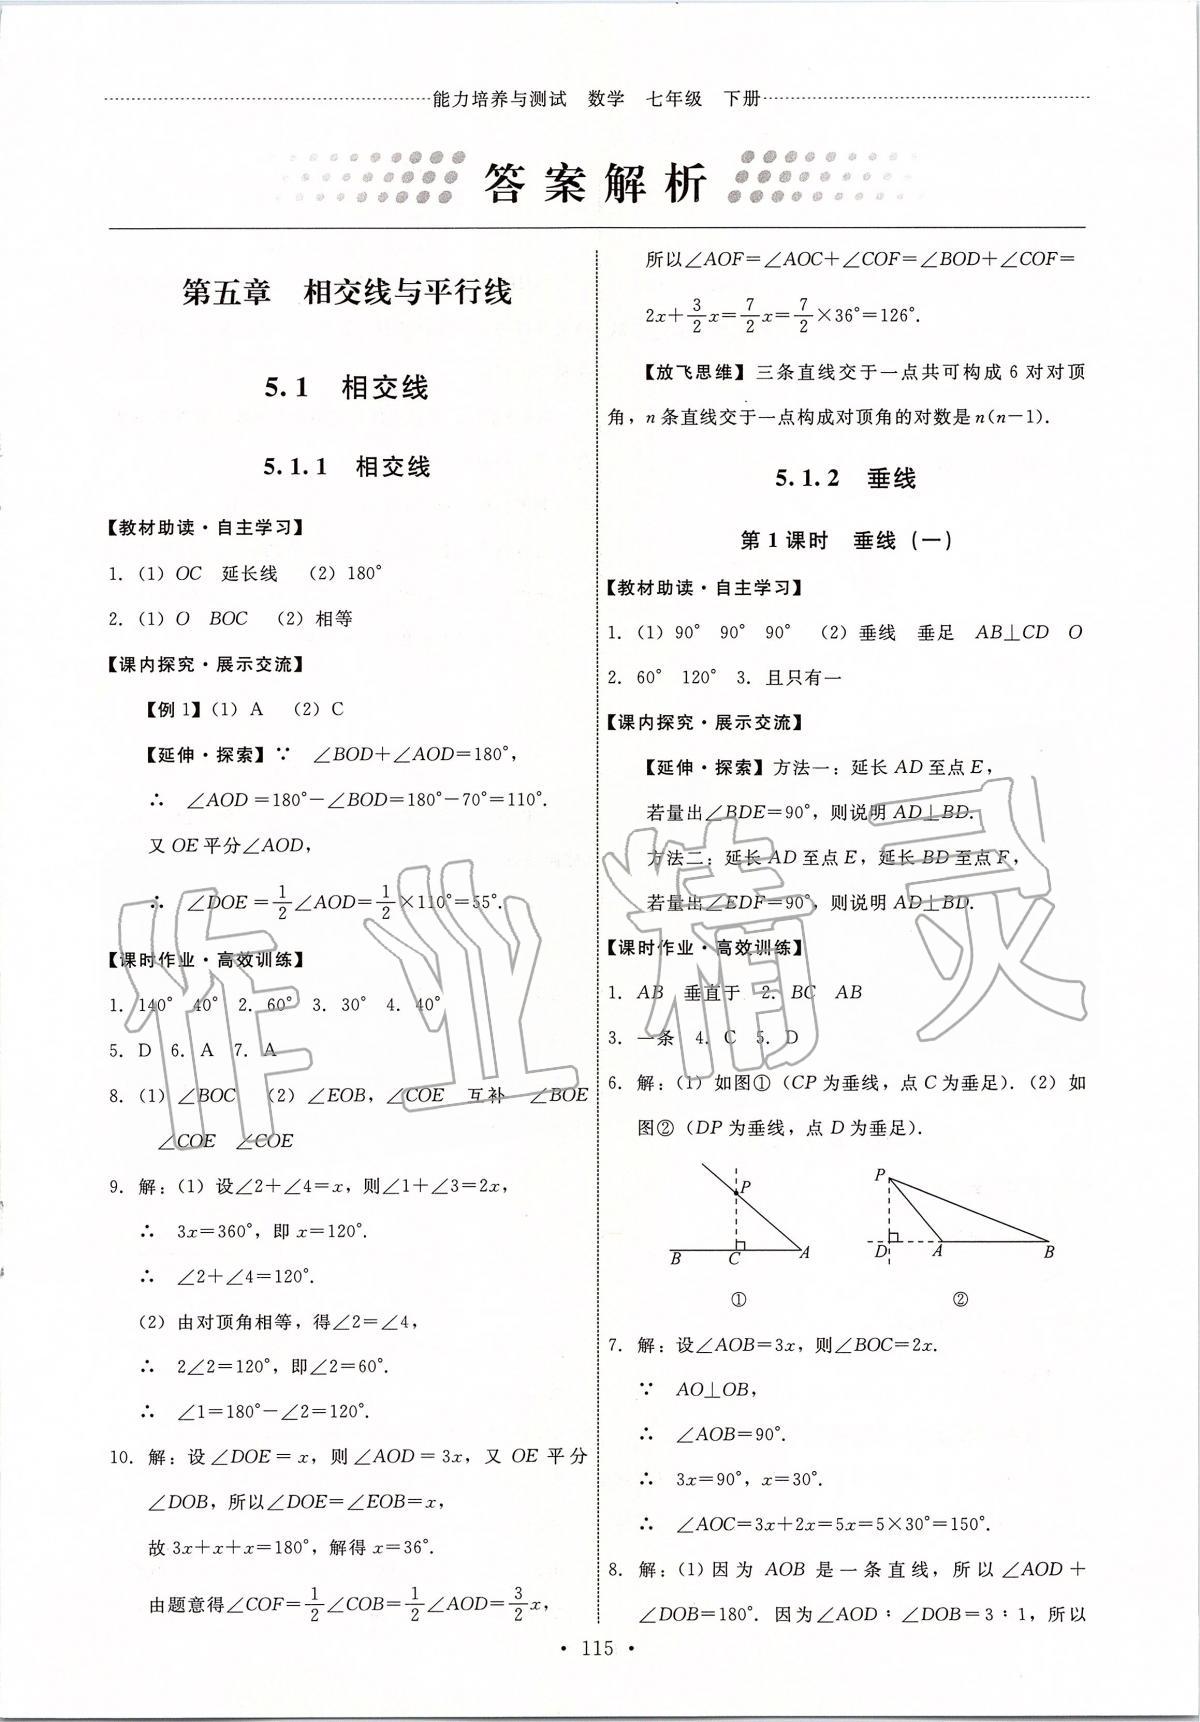 能力培养与测试　数学　七年级　下册
答案解析
第五章　相交线与平行线
5.1　相交线
5.1.1　相交线
【教材助读·自主学习】
1. (1) OC　延长线　(2) 180°
2. (1) O　BOC　(2) 相等
【课内探究·展示交流】
【例1】(1) A　(2) C
【延伸·探索】∵　∠BOD+∠AOD=180°,
∴　∠AOD=180°-∠BOD=180°-70°=110°.
又OE平分∠AOD,
∴　∠DOE=1/2∠AOD=1/2×110°=55°.
【课时作业·高效训练】
1. 140°　40°　2. 60°　3. 30°　4. 40°
5. D　6. A　7. A
8. (1) ∠BOC　(2) ∠EOB, ∠COE　互补　∠BOE
∠COE　∠COE
9. 解:(1) 设∠2+∠4=x,则∠1+∠3=2x,
∴　3x=360°,即x=120°.
∴　∠2+∠4=120°.
(2) 由对顶角相等,得∠2=∠4,
∴　2∠2=120°,即∠2=60°.
∴　∠1=180°-∠2=120°.
10. 解:设∠DOE=x,则∠AOD=3x,又OE平分
∠DOB,所以∠DOE=∠EOB=x,
故3x+x+x=180°,解得x=36°.
由题意得∠COF=1/2∠COB=1/2∠AOD=3/2x,
所以∠AOF=∠AOC+∠COF=∠BOD+∠COF=
2x+3/2x=7/2x=7/2×36°=126°.
【放飞思维】三条直线交于一点共可构成6对对顶
角,n条直线交于一点构成对顶角的对数是n(n-1).
5.1.2　垂线
第1课时　垂线(一)
【教材助读·自主学习】
1. (1) 90°　90°　90°　(2) 垂线　垂足　AB⊥CD　O
2. 60°　120°　3. 且只有一
【课内探究·展示交流】
【延伸·探索】方法一:延长AD至点E,
若量出∠BDE=90°,则说明AD⊥BD.
方法二:延长AD至点E,延长BD至点F,
若量出∠EDF=90°,则说明AD⊥BD.
【课时作业·高效训练】
1. AB　垂直于　2. BC　AB
3. 一条　4. C　5. D
6. 解:(1) 如图①(CP为垂线,点C为垂足).(2) 如
图②(DP为垂线,点D为垂足).
P
B　C　A
①
P
D　A　B
②
7. 解:设∠AOB=3x,则∠BOC=2x.
∵　AO⊥OB,
∴　∠AOB=90°.
∴　3x=90°,x=30°.
∴　∠AOC=3x+2x=5x=5×30°=150°.
8. 解:(1) 因为AOB是一条直线,所以∠AOD+
∠DOB=180°. 因为∠AOD∶∠DOB=3∶1,所以
• 115 •
作业精灵